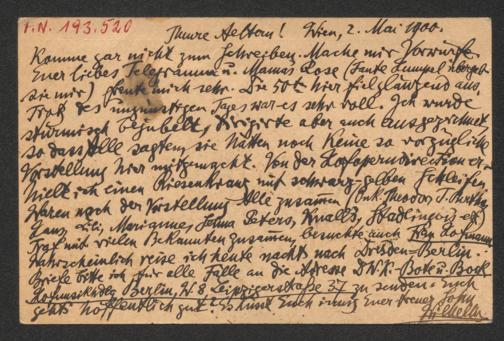 I.N. 193.520
Theure Aeltern! Wien, 2. Mai 1900.
Komme gar nicht zum Schreiben. Mache mir Vorwürfe.
Euer liebes Telegramm u. Mamas Rose (Tante
sie mir) freute mich sehr. Die 50te hier fiel glänzend aus.
Trotz des ungünstigen Tages war es sehr voll. Ich wurde
stürmisch bejubelt, dirigirte aber auch ausgezeichnet,
so dass Alle sagten, sie hätten noch keine so vorzügliche
Vorstellung hier mitgemacht. Von der Hofoperndirection er-
hielt ich einen Riesenkranz mit schwarz-gelben Schleifen.
Waren nach der Vorstellung Alle zusammen (Onk. Theodor,
Marianne, Peters,
Traf mit vielen Bekannten zusammen, besuchte auch Frau Hofmann
Wahrscheinlich reise ich heute nachts nach Dresden-Berlin.
Briefe bitte ich für alle Fälle an die Adresse Bote u. Bock
Hofmusikhdlg Berlin, Leipzigerstraße 37 zu senden. Euch
gehts hoffentlich gut. Es küsst Euch innig Euer treuer Sohn
Wilhelm